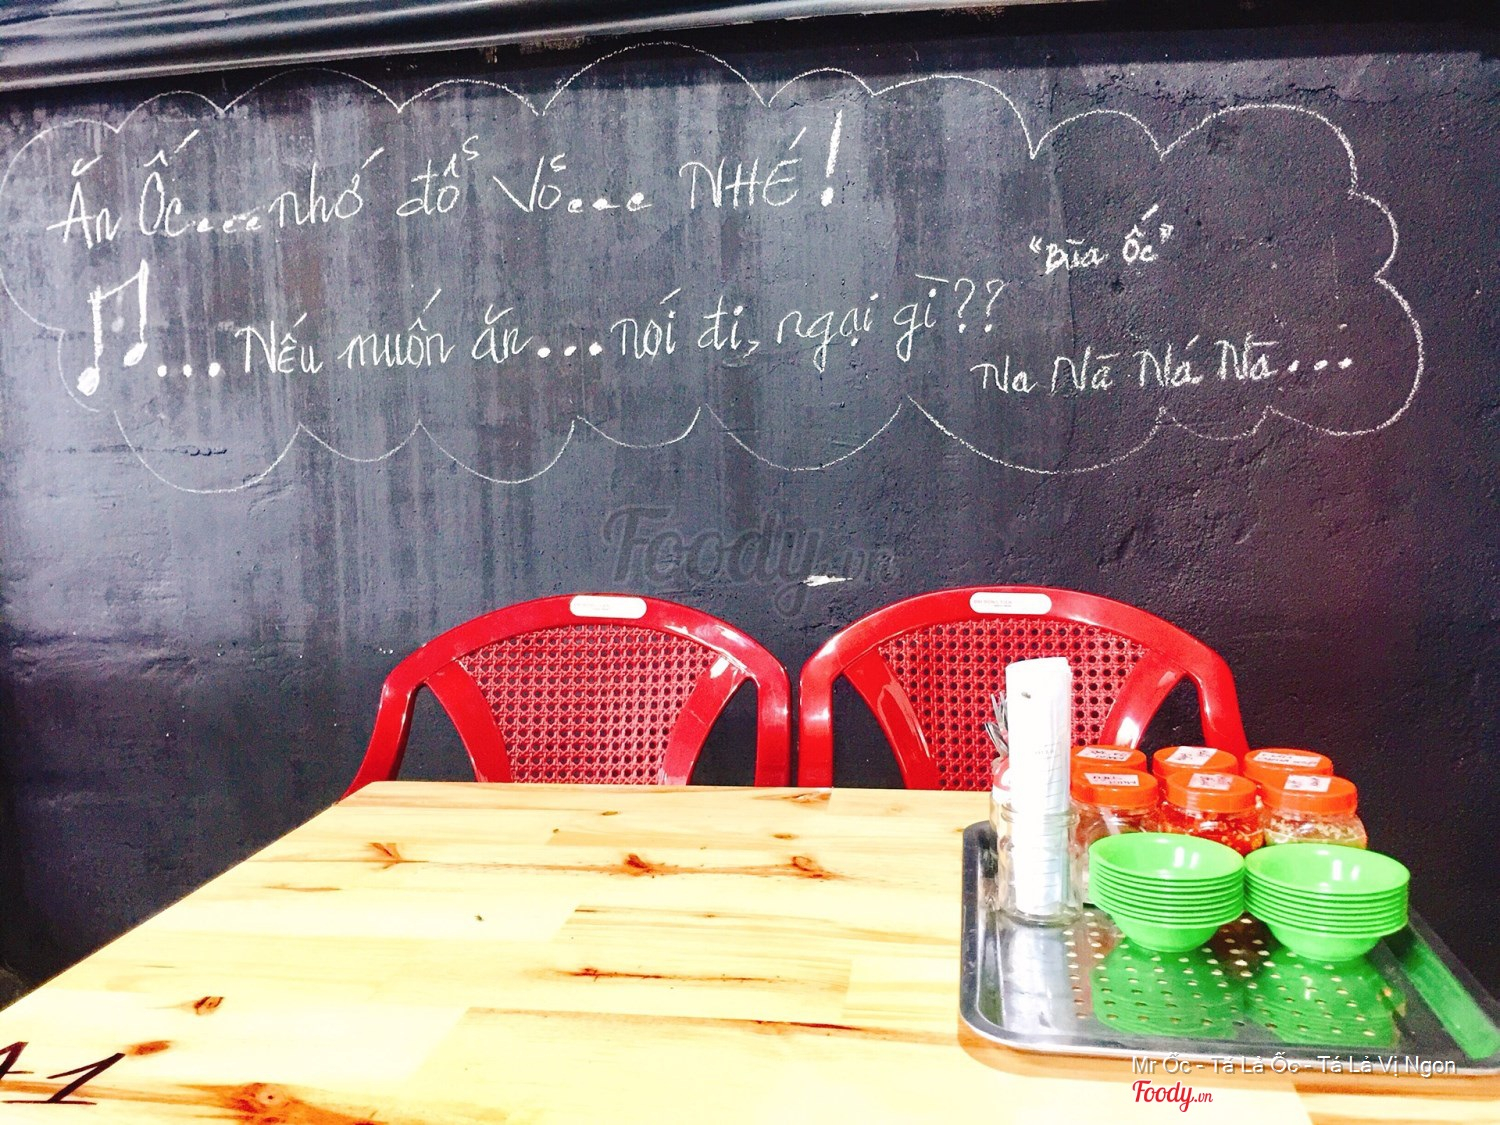 Ăn Ốc...nhớ đổ Vỏ... NHÉ!
"Bùa Ốc"
...Nếu muốn ăn...nói đi, ngại gì??
Na Nā Ná Nà...
Foody.vn
A1
Mr Ốc - Tá Lả Ốc - Tá Lả Vị Ngon
Foody.vn